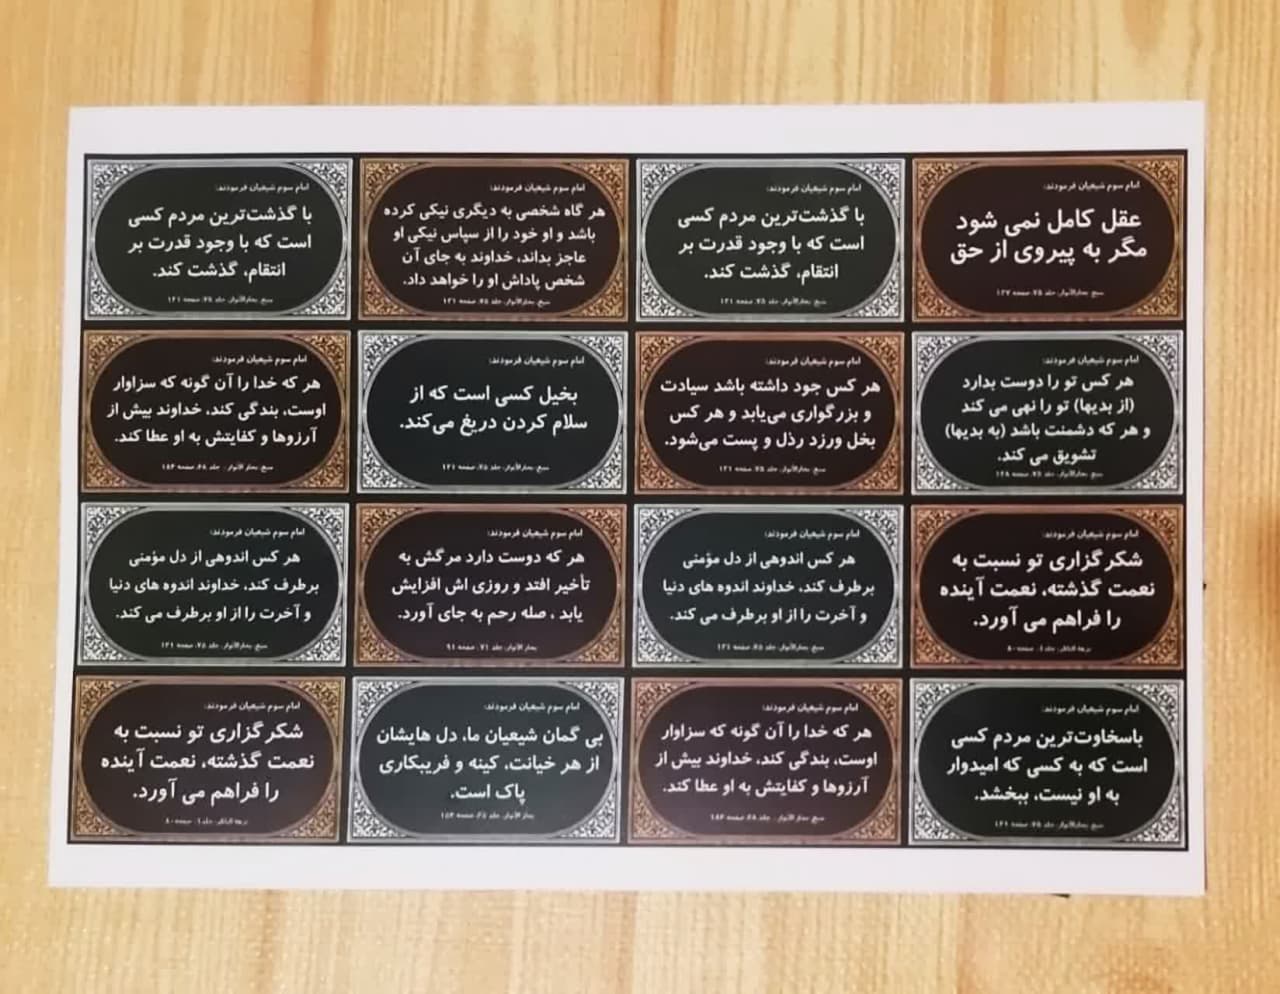 امام سوم شیعیان فرمودند:
عقل کامل نمی شود
مگر به پیروی از حق
منبع: بحارالأنوار، جلد ۷۵، صفحه ۱۲۷
امام سوم شیعیان فرمودند:
با گذشت‌ترین مردم کسی
است که با وجود قدرت بر
انتقام، گذشت کند.
منبع: بحارالأنوار، جلد ۷۵، صفحه ۱۲۱
امام سوم شیعیان فرمودند:
هر گاه شخصی به دیگری نیکی کرده
باشد و او خود را از سپاس نیکی او
عاجز بداند، خداوند به جای آن
شخص پاداش او را خواهد داد.
منبع: بحارالأنوار، جلد ۷۵، صفحه ۱۲۱
امام سوم شیعیان فرمودند:
با گذشت‌ترین مردم کسی
است که با وجود قدرت بر
انتقام، گذشت کند.
منبع: بحارالأنوار، جلد ۷۵، صفحه ۱۲۱
امام سوم شیعیان فرمودند:
هر کس تو را دوست بدارد
(از بدیها) تو را نهی می کند
و هر که دشمنت باشد (به بدیها)
تشویق می کند.
منبع: بحارالأنوار، جلد ۷۵، صفحه ۱۲۸
امام سوم شیعیان فرمودند:
هر کس جود داشته باشد سیادت
و بزرگواری می‌یابد و هر کس
بخل ورزد رذل و پست می‌شود.
منبع: بحارالأنوار، جلد ۷۵، صفحه ۱۲۱
امام سوم شیعیان فرمودند:
بخیل کسی است که از
سلام کردن دریغ می‌کند.
منبع: بحارالأنوار، جلد ۷۵، صفحه ۱۲۱
امام سوم شیعیان فرمودند:
هر که خدا را آن گونه که سزاوار
اوست، بندگی کند، خداوند بیش از
آرزوها و کفایتش به او عطا کند.
منبع: بحار الأنوار، جلد ۶۸، صفحه ۱۸۴
امام سوم شیعیان فرمودند:
شکر گزاری تو نسبت به
نعمت گذشته، نعمت آینده
را فراهم می آورد.
نزهة الناظر، جلد ۱، صفحه ۸۰
امام سوم شیعیان فرمودند:
هر کس اندوهی از دل مؤمنی
برطرف کند، خداوند اندوه های دنیا
و آخرت را از او برطرف می کند.
منبع: بحارالأنوار، جلد ۷۵، صفحه ۱۲۱
امام سوم شیعیان فرمودند:
هر که دوست دارد مرگش به
تأخیر افتد و روزی اش افزایش
یابد ، صله رحم به جای آورد.
بحار الأنوار، جلد ۷۱، صفحه ۹۱
امام سوم شیعیان فرمودند:
هر کس اندوهی از دل مؤمنی
برطرف کند، خداوند اندوه های دنیا
و آخرت را از او برطرف می کند.
منبع: بحارالأنوار، جلد ۷۵، صفحه ۱۲۱
امام سوم شیعیان فرمودند:
باسخاوت‌ترین مردم کسی
است که به کسی که امیدوار
به او نیست، ببخشد.
منبع: بحارالأنوار، جلد ۷۵، صفحه ۱۲۱
امام سوم شیعیان فرمودند:
هر که خدا را آن گونه که سزاوار
اوست، بندگی کند، خداوند بیش از
آرزوها و کفایتش به او عطا کند.
منبع: بحار الأنوار، جلد ۶۸، صفحه ۱۸۴
امام سوم شیعیان فرمودند:
بی گمان شیعیان ما، دل هایشان
از هر خیانت، کینه و فریبکاری
پاک است.
بحار الأنوار، جلد ۶۵، صفحه ۱۵۴
امام سوم شیعیان فرمودند:
شکر گزاری تو نسبت به
نعمت گذشته، نعمت آینده
را فراهم می آورد.
نزهة الناظر، جلد ۱، صفحه ۸۰